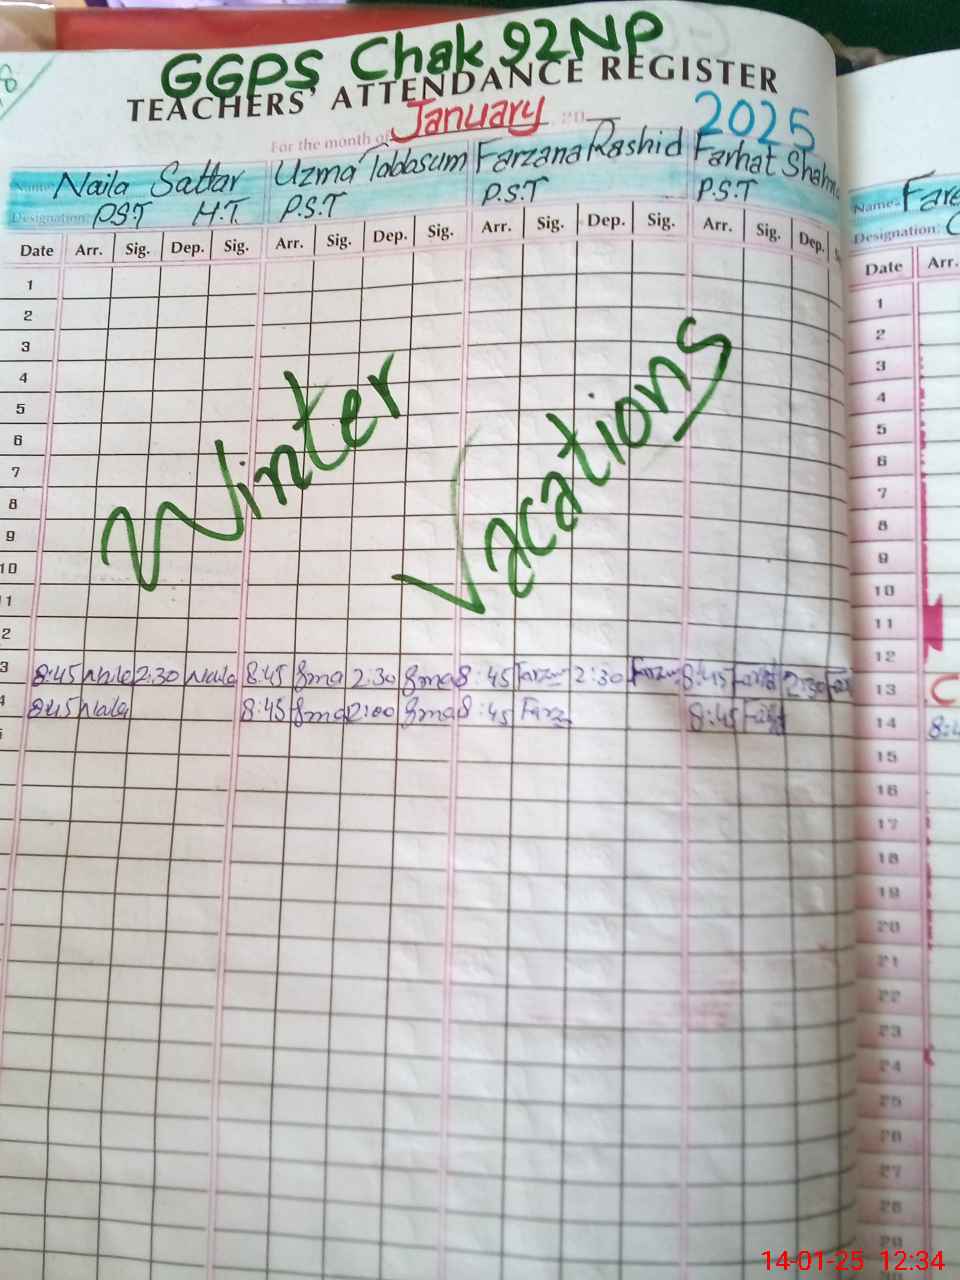 GGPS Chak 92NP
TEACHERS' ATTENDANCE REGISTER
For the month of January, 20 2025
Name: Naila Sattar Uzma Tabbasum Farzana Rashid Farhat
Designation: P.S.T H.T. P.S.T P.S.T P.S.T
Date Arr. Sig. Dep. Sig. Arr. Sig. Dep. Sig. Arr. Sig. Dep. Sig. Arr. Sig. Dep.
1
2
3
4
5
6
7
8
9
10
11
12
Winter Vacations
13 8:45 Naila 2:30 Naila 8:45 2:30 8:45 2:30 8:45 2:30
14 8:45 Naila 8:45 2:00 8:45 8:45
Name:
Designation:
Date Arr.
1
2
3
4
5
6
7
8
9
10
11
12
13 C
14
15
16
17
18
19
20
21
22
23
24
25
26
27
28
29
14-01-25 12:34